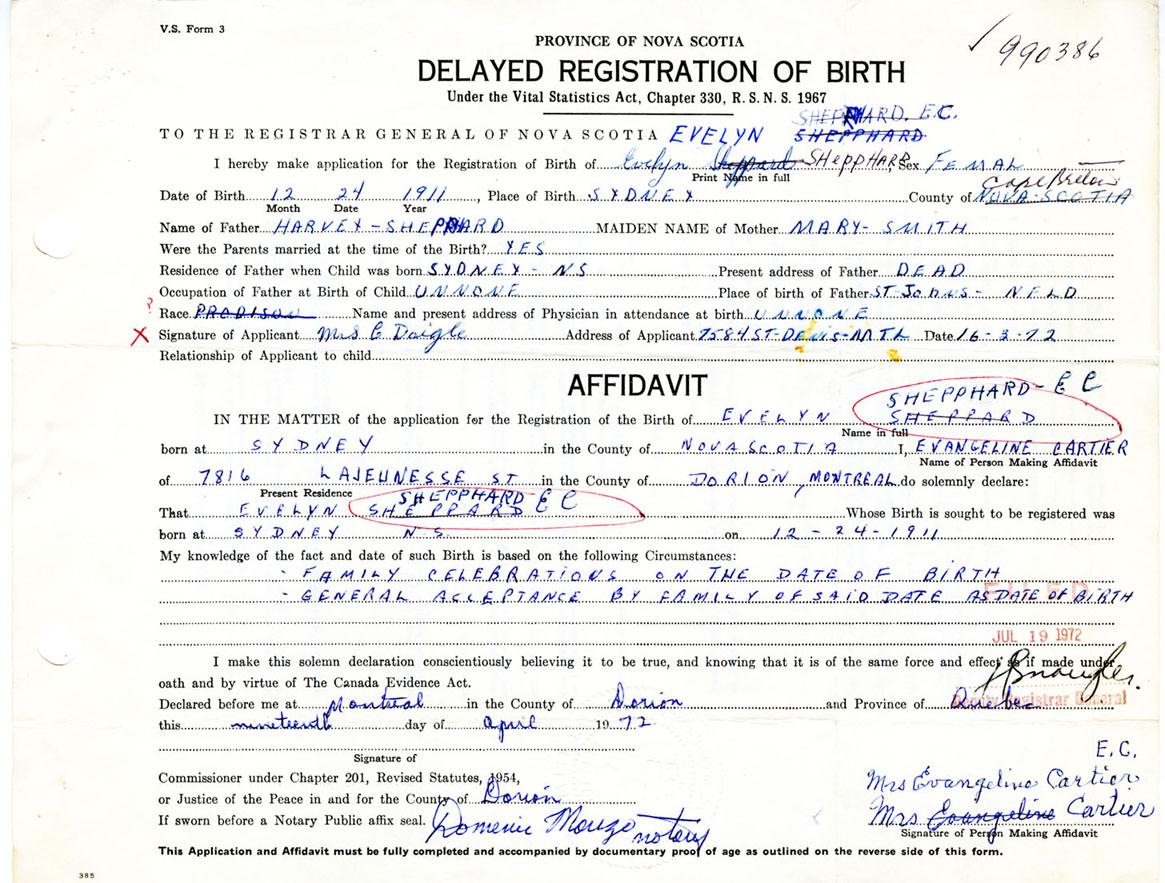 V.S. Form 3
990386
PROVINCE OF NOVA SCOTIA
DELAYED REGISTRATION OF BIRTH
Under the Vital Statistics Act, Chapter 330, R. S. N. S. 1967
SHEPPHARD. E.C.
TO THE REGISTRAR GENERAL OF NOVA SCOTIA EVELYN SHEPPHARD
I hereby make application for the Registration of Birth of Evelyn Sheppard SHEPPHARD, Sex FEMAL
Print Name in full
Cape Breton
Date of Birth 12 24 1911, Place of Birth SYDNEY County of NOVA-SCOTIA
Month Date Year
Name of Father HARVEY-SHEPPARD MAIDEN NAME of Mother MARY-SMITH
Were the Parents married at the time of the Birth? YES
Residence of Father when Child was born SYDNEY-NS Present address of Father DEAD
Occupation of Father at Birth of Child UNNONE Place of birth of Father ST-JOhNS- NFLD
? Race Name and present address of Physician in attendance at birth UNNONE
X Signature of Applicant Mrs E Daigle Address of Applicant 7584 ST-DENIS-MTL Date 16-3-72
Relationship of Applicant to child
AFFIDAVIT
SHEPPHARD- E C
IN THE MATTER of the application for the Registration of the Birth of EVELYN SHEPPARD
Name in full
born at SYDNEY in the County of NOVA SCOTIA I, EVANGELINE CARTIER
Name of Person Making Affidavit
of 7816 LAJEUNESSE ST in the County of DORION, MONTREAL do solemnly declare:
Present Residence
SHEPPHARD E C
That EVELYN SHEPPARD Whose Birth is sought to be registered was
born at SYDNEY N.S. on 12-24-1911
My knowledge of the fact and date of such Birth is based on the following Circumstances:
- FAMILY CELEBRATIONS ON THE DATE OF BIRTH
- GENERAL ACCEPTANCE BY FAMILY OF SAID DATE AS DATE OF BIRTH
FILED
JUL 19 1972
I make this solemn declaration conscientiously believing it to be true, and knowing that it is of the same force and effect as if made under
oath and by virtue of The Canada Evidence Act.
Deputy Registrar General
Declared before me at Montreal in the County of Dorion and Province of Quebec
this nineteenth day of April 1972
Signature of
E.C.
Commissioner under Chapter 201, Revised Statutes, 1954,
Mrs Evangeline Cartier
or Justice of the Peace in and for the County of Dorion
Mrs. Evangeline Cartier
If sworn before a Notary Public affix seal. Domenic notary
Signature of Person Making Affidavit
This Application and Affidavit must be fully completed and accompanied by documentary proof of age as outlined on the reverse side of this form.
385